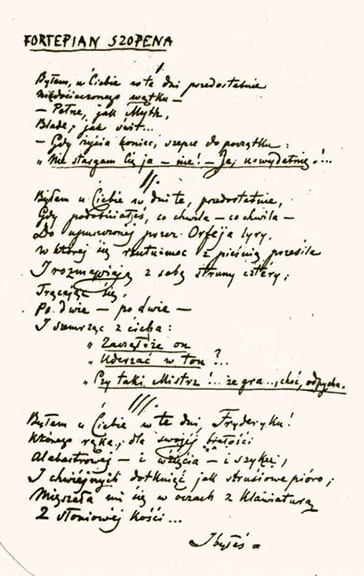 FORTEPIAN SZOPENA
I.
Byłem u Ciebie w te dni przedostatnie
Niedocieczonego wątku —
— Pełne, jak Myth,
Blade, jak świt...
— Gdy życia koniec, szepce do początku:
„Nie stargam Cię ja — nie! — Ja, uwydatnię!...
II.
Byłem u Ciebie w dni te, przedostatnie,
Gdy podobniałeś, co chwila — co chwila —
Do upuszczonej przez Orfeja lyry,
W której się rzutu-moc z pieśnią przesila
I rozmawiają z sobą struny cztery,
Trącając się,
Po dwie — po dwie —
I szemrząc z cicha:
„Zaczął-że on
„Uderzać w ton?...
„Czy taki Mistrz!... że gra..., choć, odpycha.
III.
Byłem u Ciebie w te dni, Fryderyku!
Którego ręka, dla swojej białości
Alabastrowej — i wzięcia — i szyku,
I chwiejnych dotknięć jak strusiowe pióro,
Mięszała mi się w oczach z klawiaturą
Z słoniowej kości...
I byłeś =